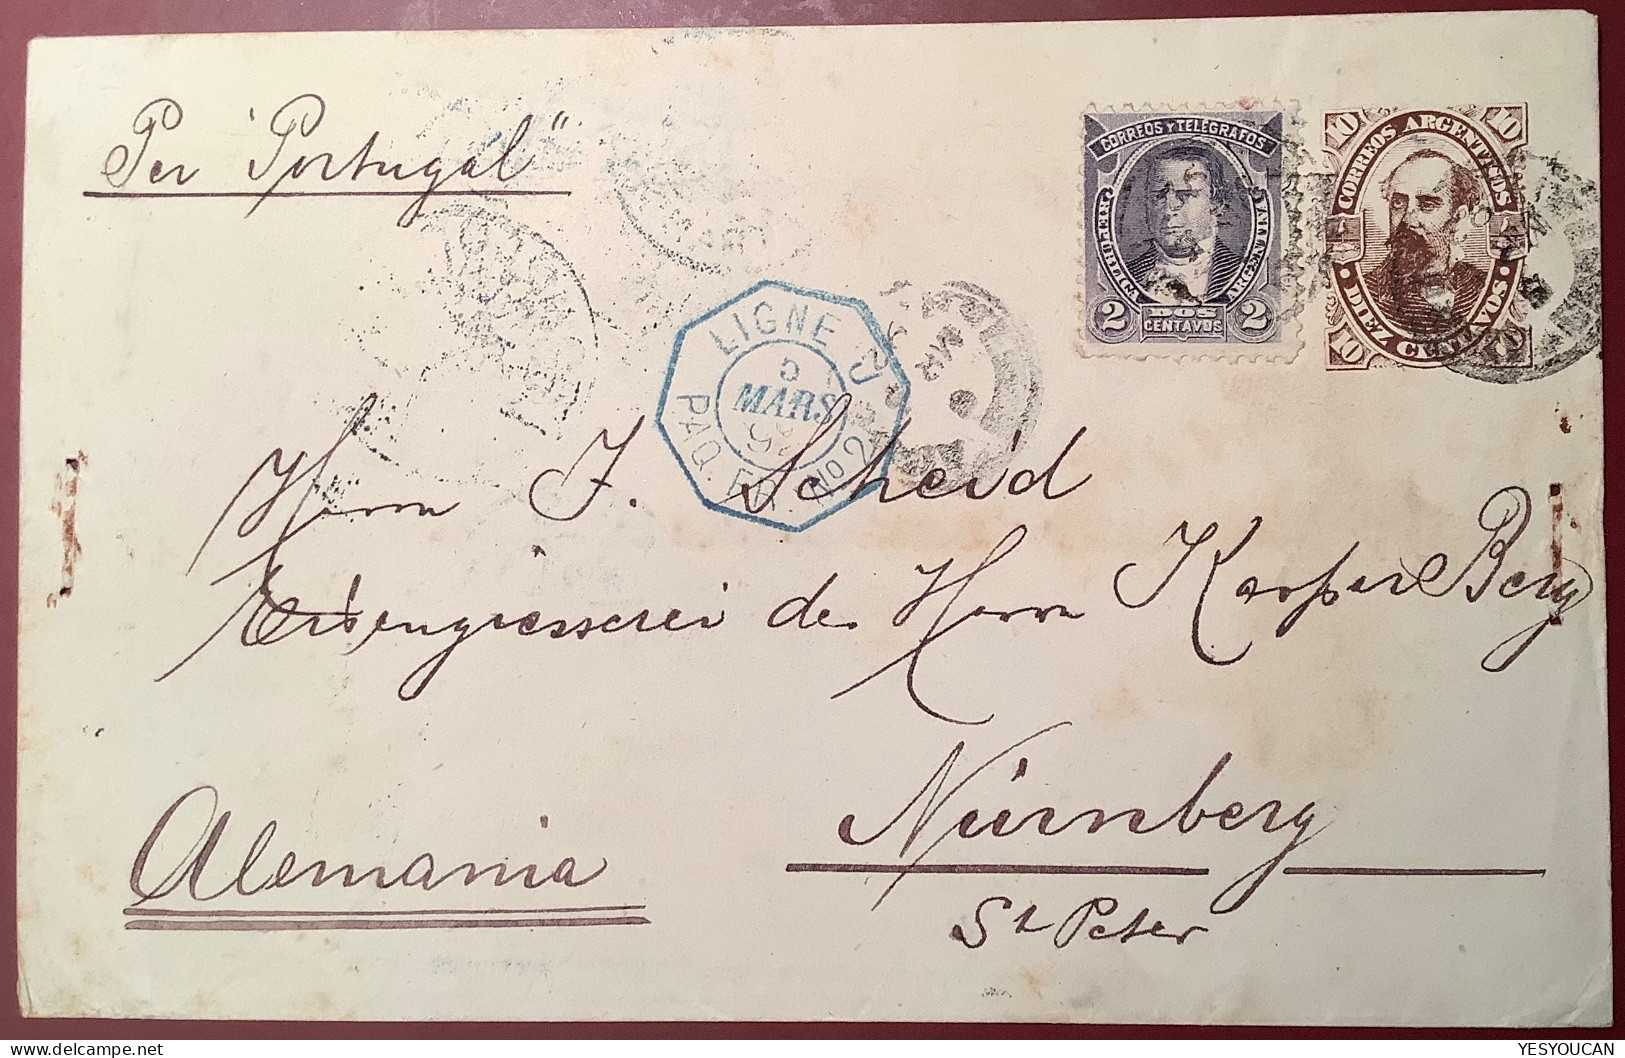 Per "Portugal"
CORREOS Y TELEGRAFOS
2 DOS CENTAVOS 2
10 CORREOS ARGENTINOS 10
10 DIEZ CENTAVOS 10
LIGNE J
5
MARS
PAQ. FR. No 2
Herrn J. Scheid
de. Herrn Kaspar Berg
Nürnberg
Alemania
St Peter
YESYOUCAN